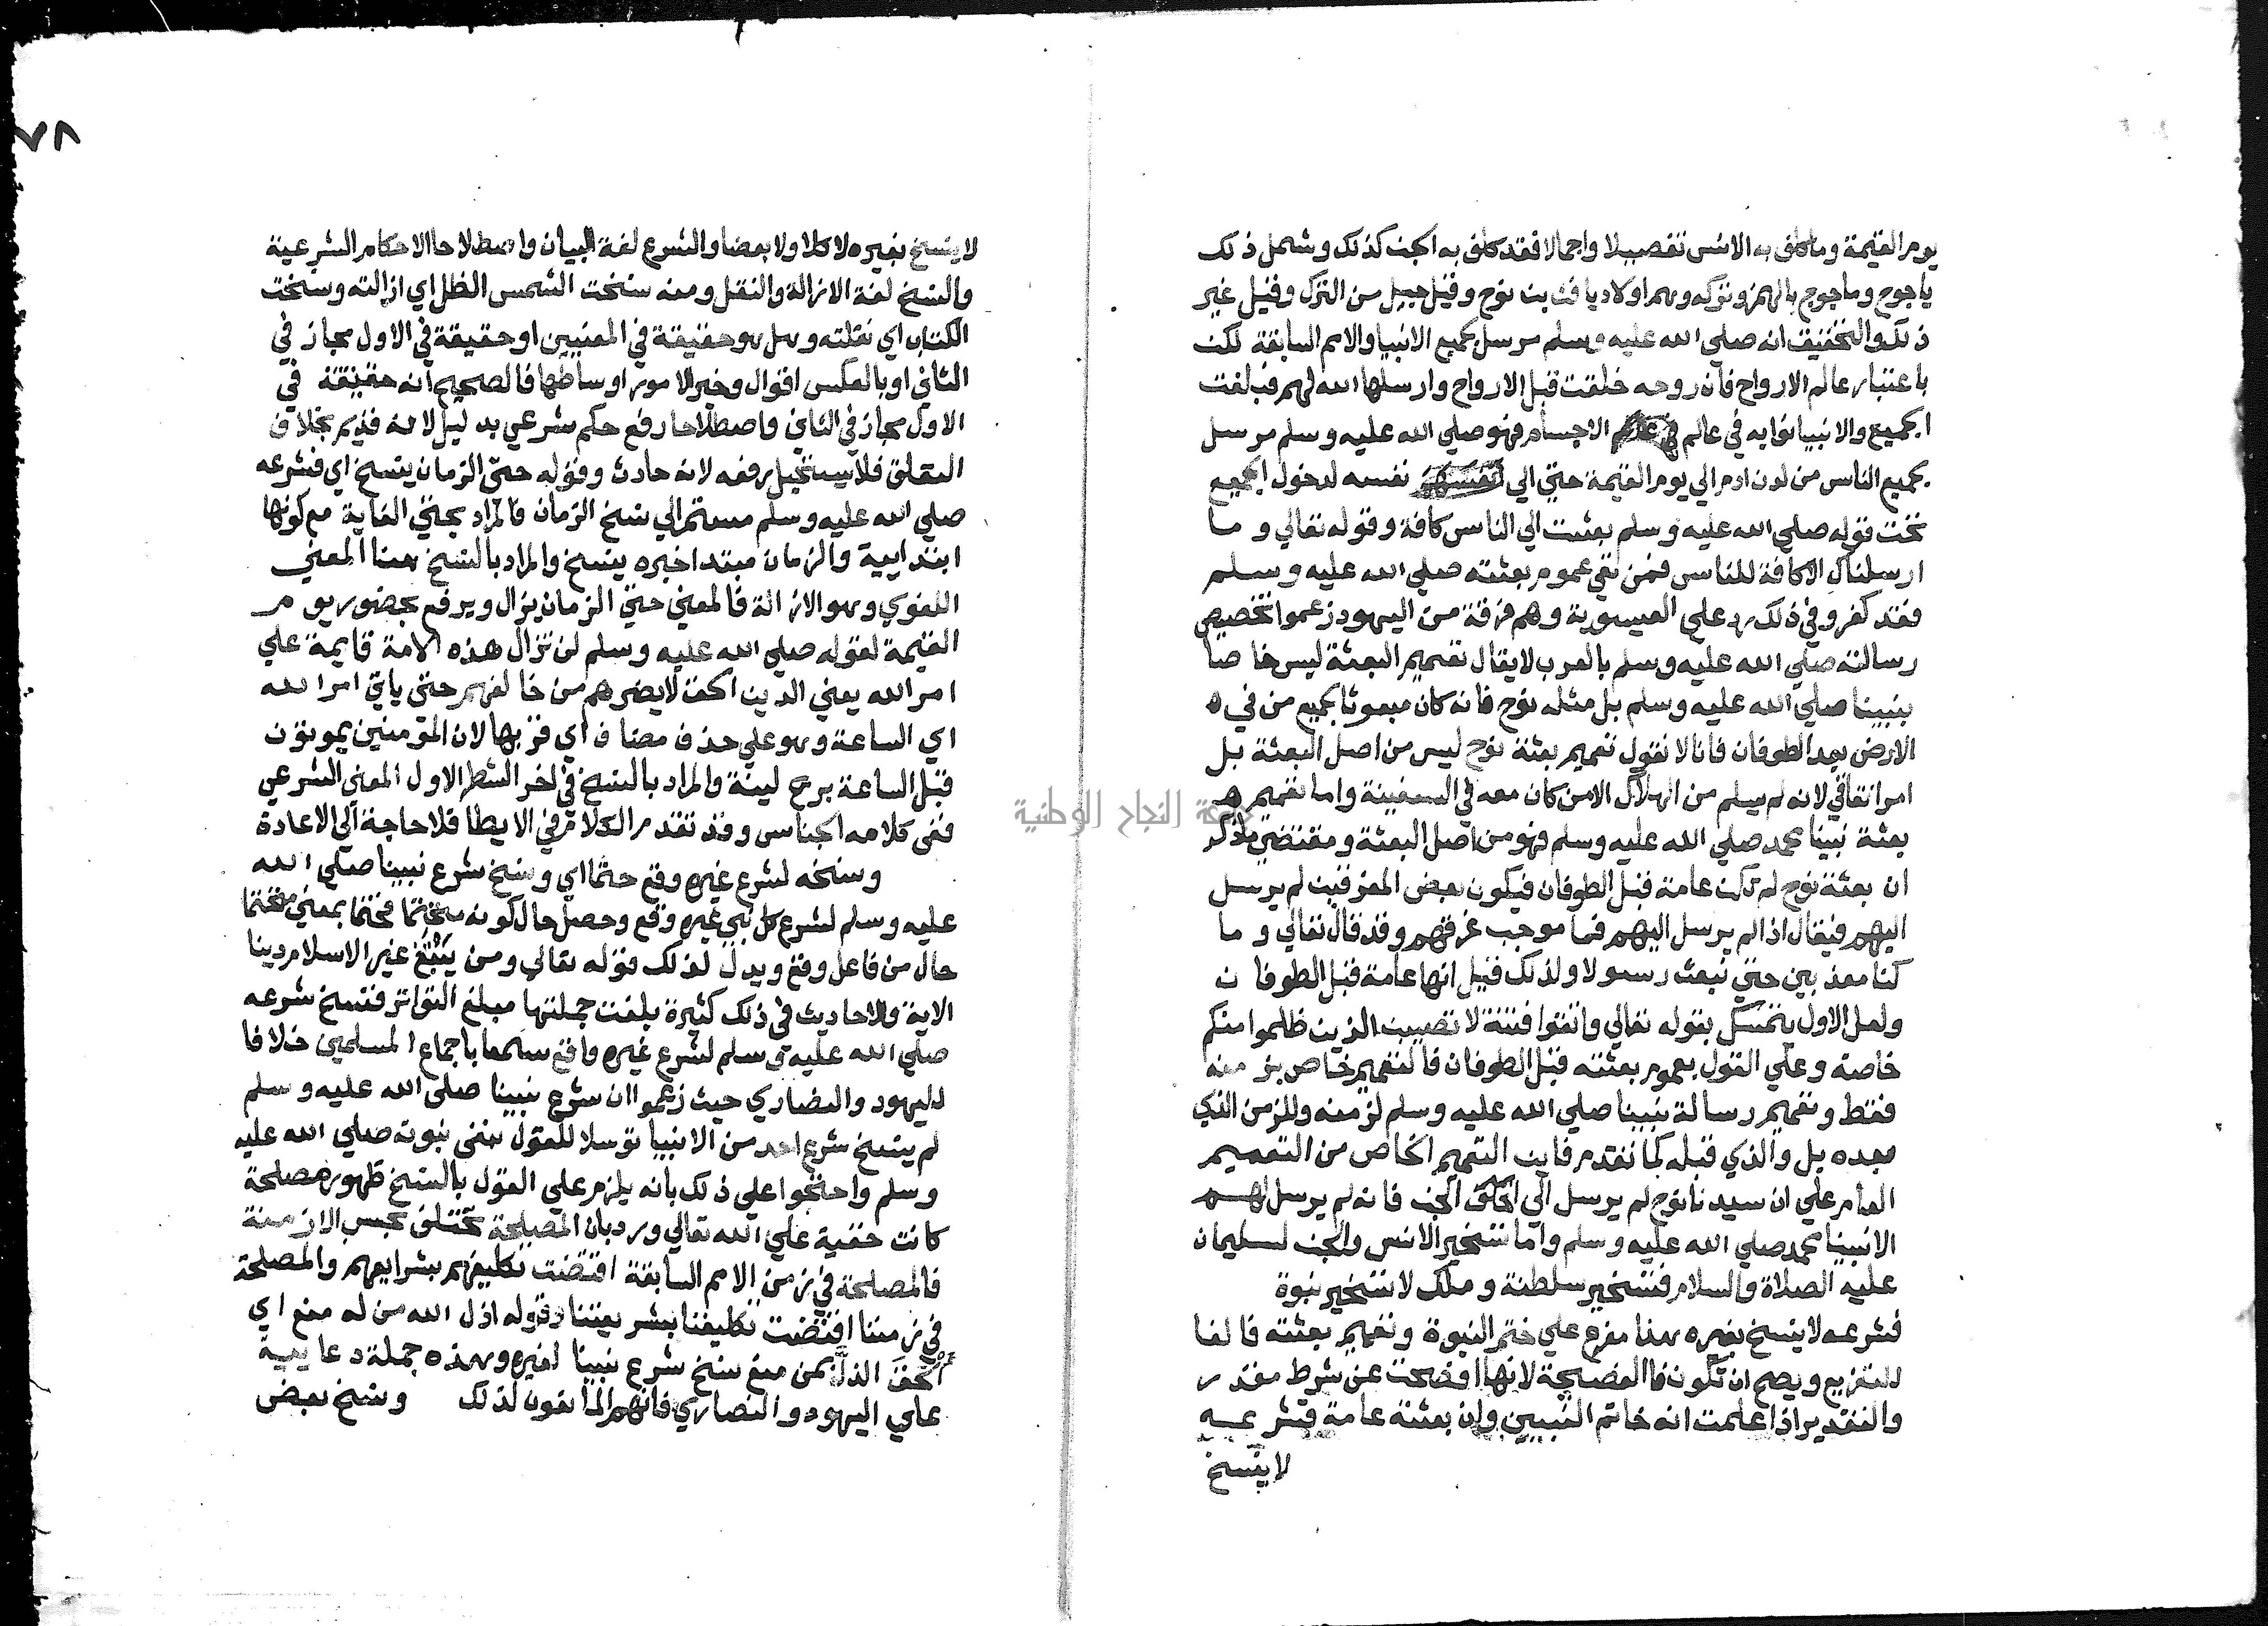 يوم القيمة وما كلف به الانس تفصيلا واجمالا فقد كلف به الجن كذلك وشمل ذلك
ياجوج وماجوج بالهمز وتركه وهم اولاد يافث بن نوح وقيل جيل من الترك وقيل غير
ذلك والتحقيق انه صلي الله عليه وسلم مرسل لجميع الانبيا والامم السابقة لكن
باعتبار عالم الارواح فان روحه خلقت قبل الارواح وارسلها الله لهم فبلغت
الجميع والانبيا نوابه في عالم الاجسام فهو صلي الله عليه وسلم مرسل
لجميع الناس من لدن ادم الي يوم القيمة حتي الي نفسه لدخول الجميع
تحت قوله صلي الله عليه وسلم بعثت الي الناس كافة وقوله تعالي وما
ارسلناك الا كافة للناس فمن نفي عموم بعثته صلي الله عليه وسلم
فقد كفر وفي ذلك رد علي العيسوية وهم فرقة من اليهود زعموا تخصيص
رسالته صلي الله عليه وسلم بالعرب لا يقال تعميم البعثة ليس خاصا
بنبينا صلي الله عليه وسلم بل مثله نوح فانه كان مبعوثا لجميع من في ه
الارض بعد الطوفان فانا لا نقول تعميم بعثة نوح ليس من اصل البعثة بل
امر اتفاقي لانه لم يسلم من الهلاك الا من كان معه في السفينة واما تعميم
بعثة نبينا محمد صلي الله عليه وسلم فهو من اصل البعثة ومقتضي ما ذكر
ان بعثة نوح لم تكن عامة قبل الطوفان فيكون بعض المغرقين لم يرسل
اليهم فيقال اذا لم يرسل اليهم فما موجب غرقهم وقد قال تعالي وما
كنا معذبين حتي نبعث رسولا ولذلك قيل انها عامة قبل الطوفان
ولعل الاول يتمسك بقوله تعالي واتقوا فتنة لا تصيبن الذين ظلموا منكم
خاصة وعلي القول بعموم بعثته قبل الطوفان فالتعميم خاص بزمنه
فقط وتعميم رسالة نبينا صلي الله عليه وسلم لزمنه وللزمن الذي
بعده بل والذي قبله كما تقدم فاين التعميم الخاص من التعميم
العام علي ان سيدنا نوح لم يرسل الي الجن فانه لم يرسل لهم
الا نبينا محمد صلي الله عليه وسلم واما تسخير الانس والجن لسليمان
عليه الصلاة والسلام فتسخير سلطنة وملك لا تسخير نبوة
فشرعه لا ينسخ بغيره هذا مفرع علي ختم النبوة وتعميم بعثته فالفا
للتفريع ويصح ان تكون فا الفصيحة لانها افصحت عن شرط مقدر
والتقدير اذا علمت انه خاتم النبيين وان بعثته عامة فشرعه
لا ينسخ
٧٨
لا ينسخ بغيره لا كلا ولا بعضا والشرع لغة البيان واصطلاحا الاحكام الشرعية
والنسخ لغة الازالة والنقل ومنه نسخت الشمس الظل اي ازالته ونسخت
الكتاب اي نقلته وهل هو حقيقة في المعنيين او حقيقة في الاول مجاز في
الثاني او بالعكس اقوال وخير الامور اوساطها فالصحيح انه حقيقة في
الاول مجاز في الثاني واصطلاحا رفع حكم شرعي بدليل لانه قديم بخلاف
التعلق فلا يستحيل رفعه لانه حادث وقوله حتي الزمان ينسخ اي فشرعه
صلي الله عليه وسلم مستمر الي نسخ الزمان فالمراد بحتي الغاية مع كونها
ابتداييه والزمان مبتدا خبره ينسخ والمراد بالنسخ هنا المعني
اللغوي وهو الازالة فالمعني حتي الزمان يزال ويرفع بحضور يوم
القيمة لقوله صلي الله عليه وسلم لن تزال هذه الامة قايمة علي
امر الله يعني الدين الحق لا يضرهم من خالفهم حتي ياتي امر الله
اي الساعة وهو علي حذف مضاف اي قربها لان المؤمنين يموتون
قبل الساعة بريح لينة والمراد بالنسخ في اخر الشطر الاول المعني الشرعي
ففي كلامه الجناس وقد تقدم الكلام في الايطا فلا حاجة الي الاعادة
ونسخه لشرع غيره وقع حتما اي ونسخ شرع نبينا صلي الله
عليه وسلم لشرع كل نبي غيره وقع وحصل حال كونه متحتما فحتما بمعني متحتما
حال من فاعل وقع ويدل لذلك قوله تعالي ومن يبتغ غير الاسلام دينا
الاية والاحاديث في ذلك كثيرة بلغت جملتها مبلغ التواتر فنسخ شرعه
صلي الله عليه وسلم لشرع غيره واقع سمعا باجماع المسلمين خلافا
لليهود والنصاري حيث زعموا ان شرع نبينا صلي الله عليه وسلم
لم ينسخ شرع احد من الانبيا توسلا للقول بنفي نبوته صلي الله عليه
وسلم واحتجوا علي ذلك بانه يلزم علي القول بالنسخ ظهور مصلحة
كانت خفية علي الله تعالي ورد بان المصلحة تختلف بحسب الازمنة
فالمصلحة في زمن الامم السابقة اقتضت تكليفهم بشرايعهم والمصلحة
في زمننا اقتضت تكليفنا بشريعتنا وقوله اذل الله من له منع اي
الحق الذل بمن منع نسخ شرع نبينا لغيره وهذه جملة دعاييه
علي اليهود والنصاري فانهم المانعون لذلك ونسخ بعض
جامعة النجاح الوطنية